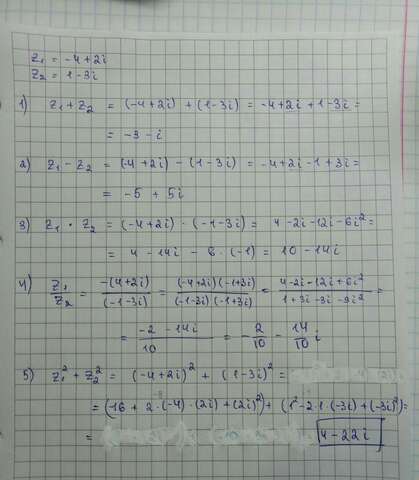 z₁ = -4+2i
z₂ = 1-3i
1) z₁+z₂ = (-4+2i) + (1-3i) = -4+2i+1-3i =
= -3-i
2) z₁-z₂ = (-4+2i) - (1-3i) = -4+2i-1+3i =
= -5+5i
3) z₁·z₂ = (-4+2i)·(-1-3i) = 4-2i-12i-6i² =
= 4-14i-6·(-1) = 10-14i
4) z₁/z₂ = -(4+2i)/(-1-3i) = (-4+2i)(-1+3i)/(-1-3i)(-1+3i) = 4-2i-12i+6i²/1+3i-3i-9i² =
= -2-14i/10 = -2/10 - 14/10 i
5) z₁²+z₂² = (-4+2i)² + (1-3i)² =
= (-16+2·(-4)·(2i)+(2i)²) + (1²-2·1·(-3i)+(-3i)²) =
= 4-22i